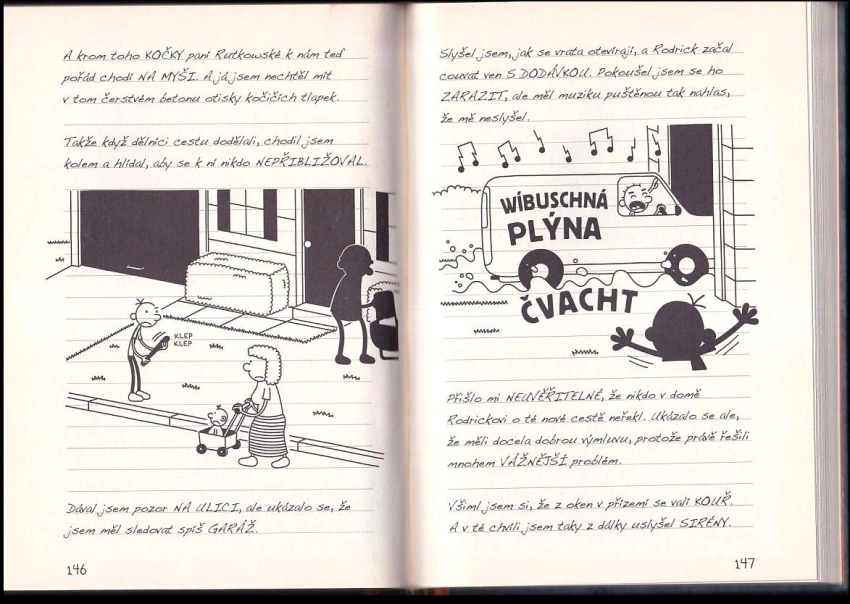 A krom toho KOČKY paní Rutkowské k nám teď
pořád chodí NA MYŠI. A já jsem nechtěl mít
v tom čerstvém betonu otisky kočičích tlapek.
Takže když dělníci cestu dodělali, chodil jsem
kolem a hlídal, aby se k ní nikdo NEPŘIBLIŽOVAL.
KLEP
KLEP
Dával jsem pozor NA ULICI, ale ukázalo se, že
jsem měl sledovat spíš GARÁŽ.
146
Slyšel jsem, jak se vrata otevírají, a Rodrick začal
couvat ven S DODÁVKOU. Pokoušel jsem se ho
ZARAZIT, ale měl muziku puštěnou tak nahlas,
že mě neslyšel.
WÍBUSCHNÁ
PLÝNA
ČVACHT
Přišlo mi NEUVĚŘITELNÉ, že nikdo v domě
Rodrickovi o té nové cestě neřekl. Ukázalo se ale,
že měli docela dobrou výmluvu, protože právě řešili
mnohem VÁŽNĚJŠÍ problém.
Všiml jsem si, že z oken v přízemí se valí KOUŘ.
A v té chvíli jsem taky z dálky uslyšel SIRÉNY.
147